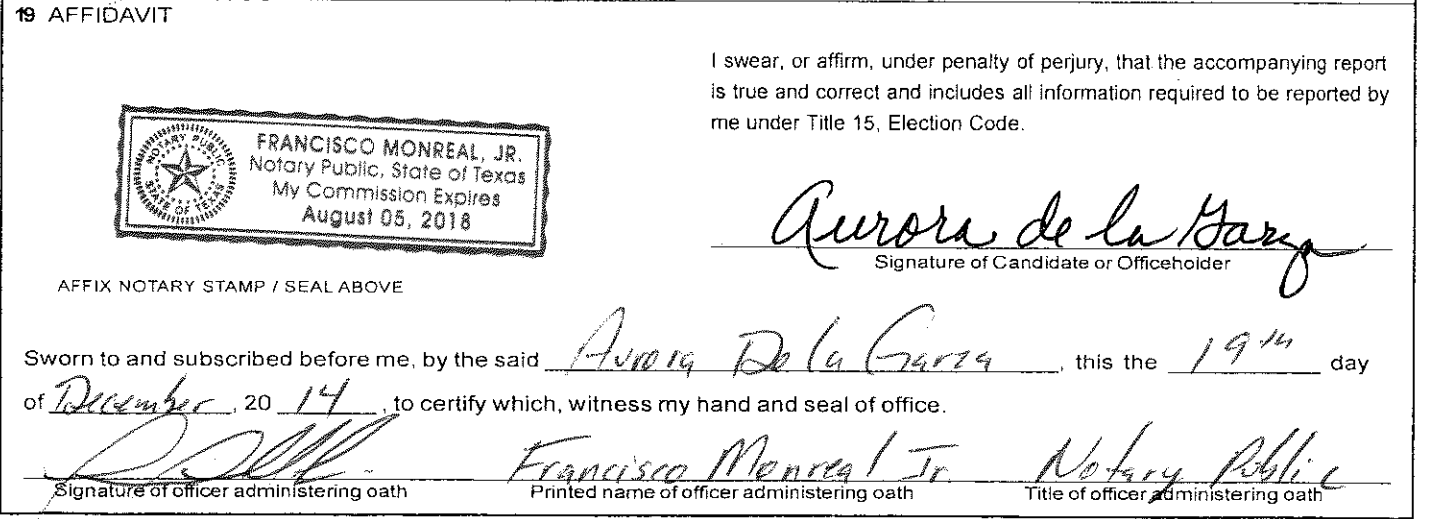 19 AFFIDAVIT
I swear, or affirm, under penalty of perjury, that the accompanying report
is true and correct and includes all information required to be reported by
me under Title 15, Election Code.
NOTARY PUBLIC
STATE OF TEXAS
FRANCISCO MONREAL, JR.
Notary Public, State of Texas
My Commission Expires
August 05, 2018
Aurora de la Garza
Signature of Candidate or Officeholder
AFFIX NOTARY STAMP / SEAL ABOVE
Sworn to and subscribed before me, by the said Aurora De la Garza, this the 19th day
of December, 20 14, to certify which, witness my hand and seal of office.
Francisco Monreal Jr. Notary Public
Signature of officer administering oath Printed name of officer administering oath Title of officer administering oath